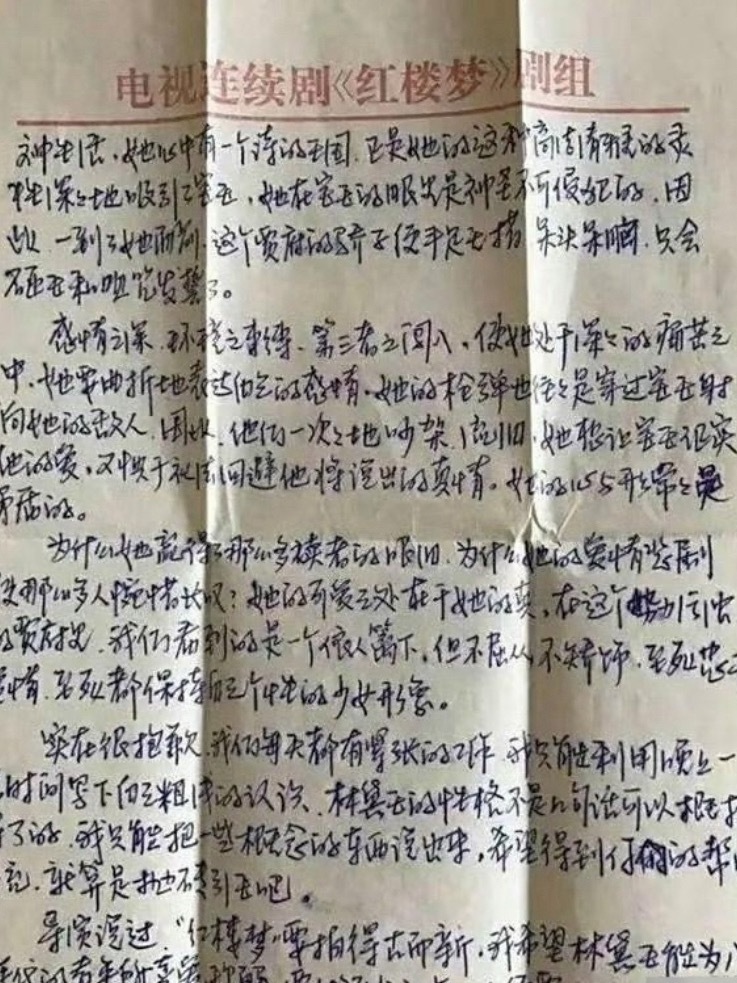 电视连续剧《红楼梦》剧组
神生活，她心中有一个诗的王国，正是她的这种高洁有形的灵
性深深地吸引了宝玉，她在宝玉的眼里是神圣不可侵犯的，因
此一到了她面前，这个贾府的骄子便手足无措，呆头呆脑，只会
感情之深，环境之束缚，第三者之闯入，使她处于深深的痛苦之
中，她要曲折地表达自己的感情，她的枪弹也往往是穿过宝玉射
向她的敌人，因此，他们一次次地吵架，她想让宝玉证实
他的爱，又惧于礼法回避他将说出的真情。她的心与形常常是
矛盾的。
为什么她赢得了那么多读者的眼泪，为什么她的爱情悲剧
使那么多人掩卷长叹？她的可爱之处在于她的真，在这个
的贾府里，我们看到的是一个依人篱下，但不屈从，不矫饰，至死
爱情，至死都保持自己个性的少女形象。
实在很抱歉，我们每天都有紧张的工作，我只能利用晚上一
点时间写下自己粗浅的认识，林黛玉的性格不是几句话可以概括
得了的，我只能把一些概念的东西说出来，希望得到你们的帮
就算是抛砖引玉吧。
导演说过，“红楼梦”要拍得古而新，我希望林黛玉能为